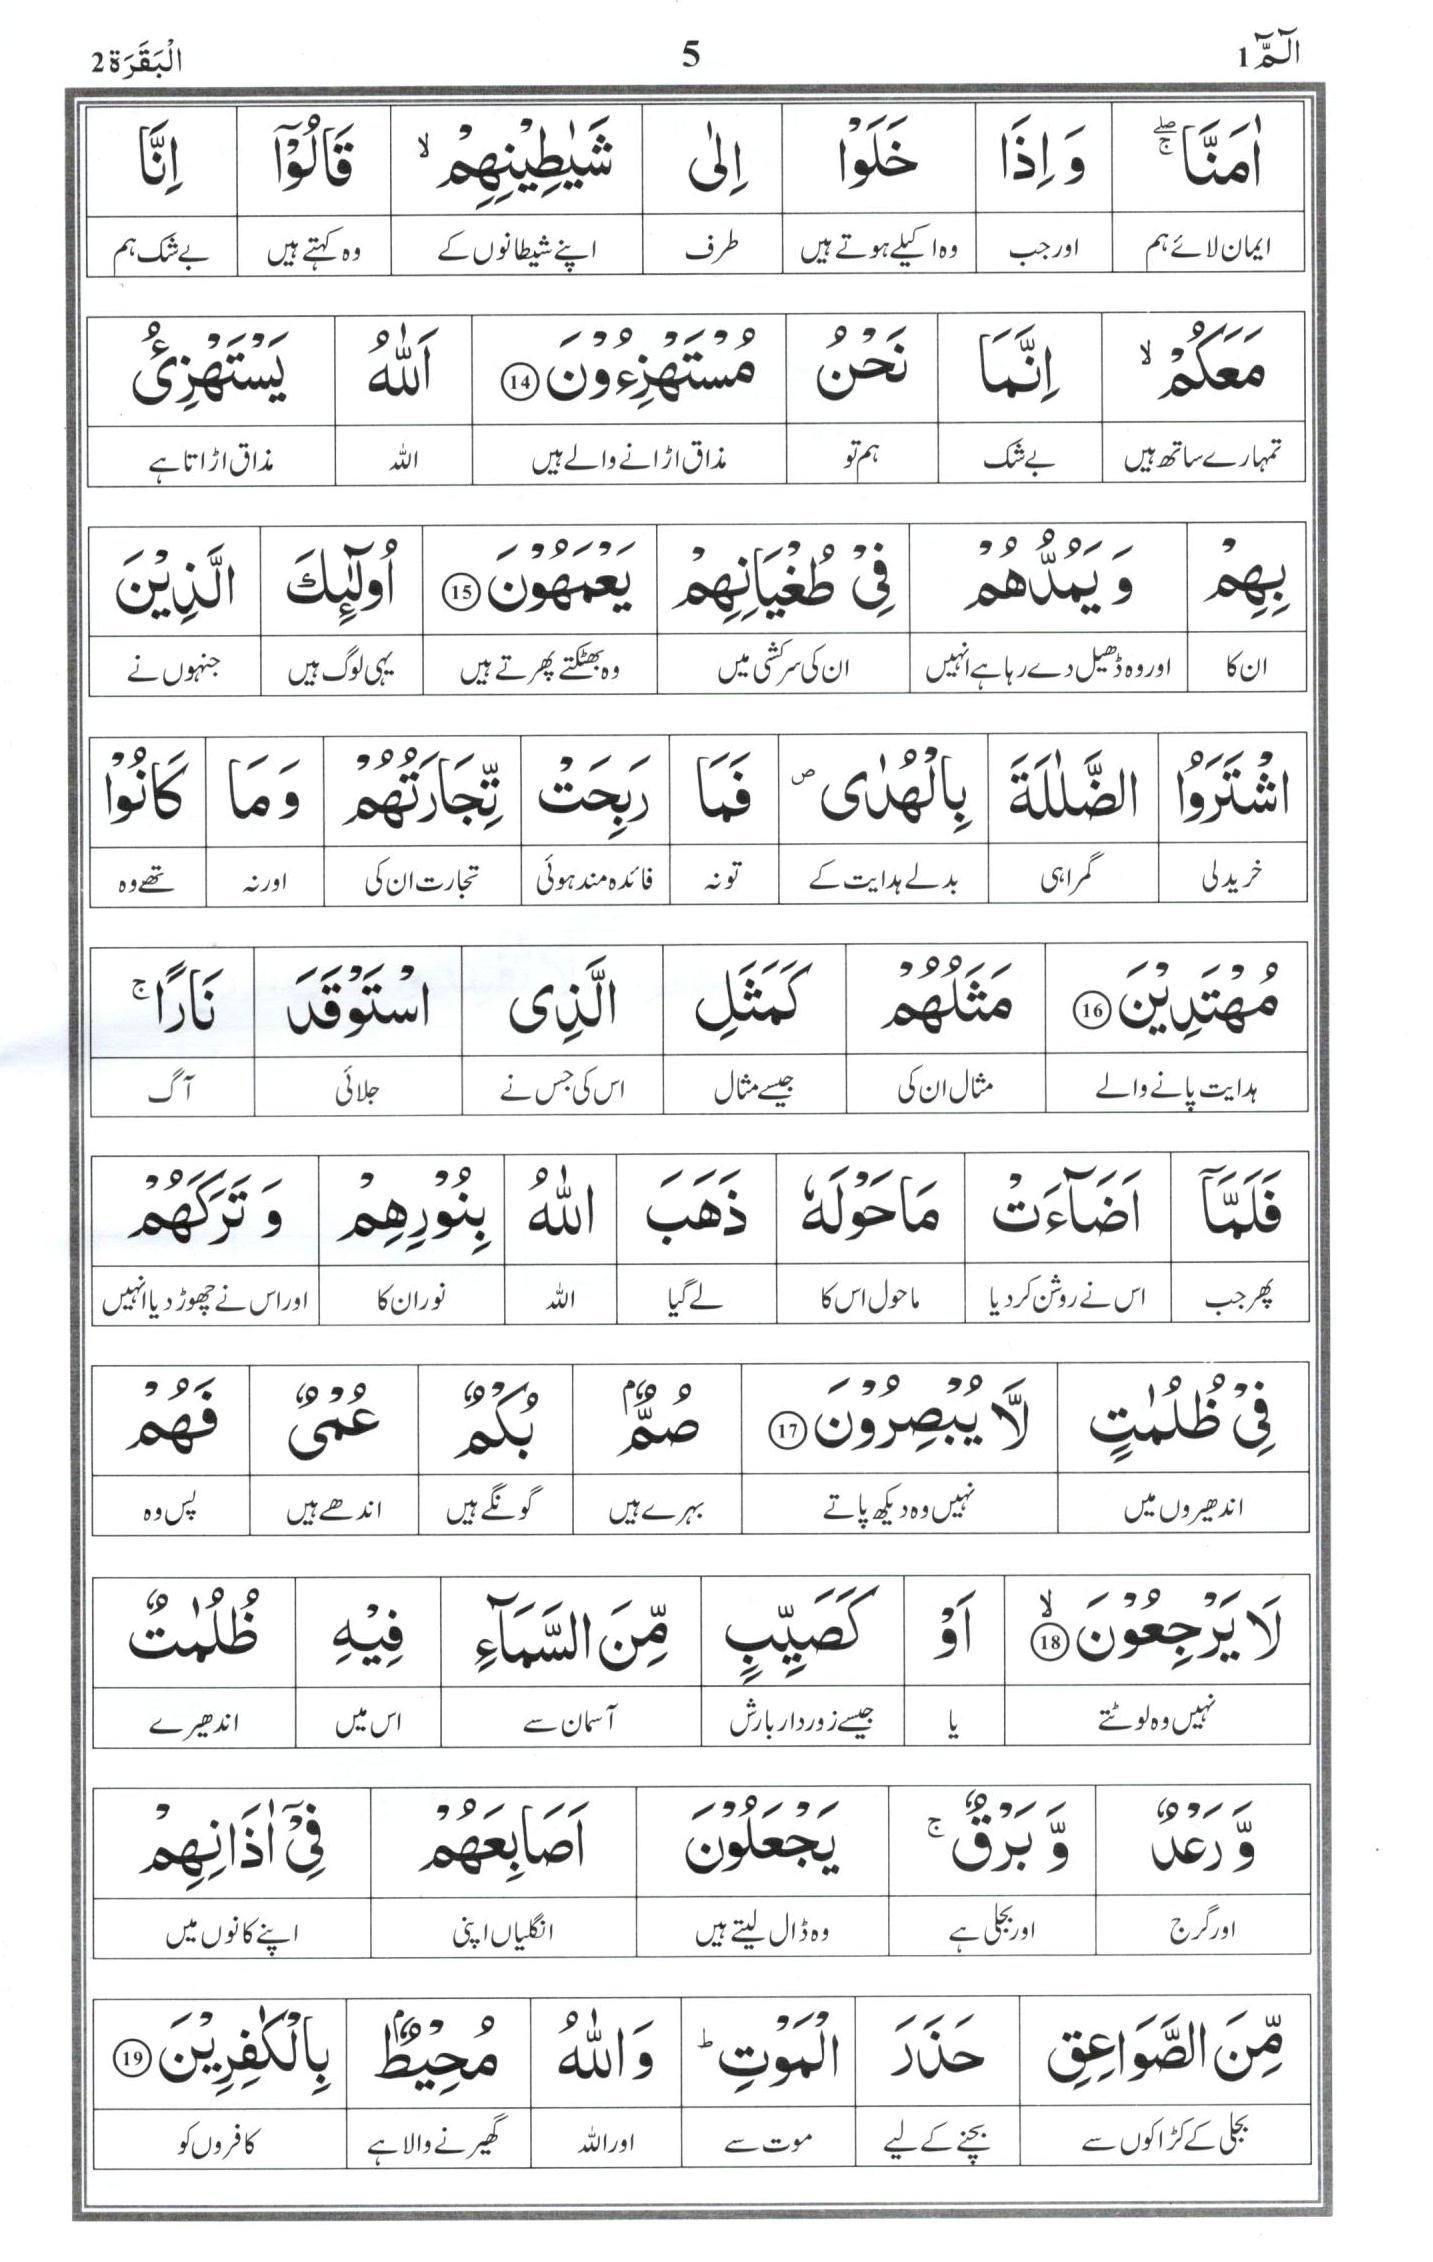 الٓمّٓ 1 5 الْبَقَرَة 2
اٰمَنَّا ۖۚ وَ اِذَا خَلَوْا اِلٰى شَيٰطِيْنِهِمْ ۙ قَالُوْٓا اِنَّا
ایمان لائے ہم اور جب وہ اکیلے ہوتے ہیں طرف اپنے شیطانوں کے وہ کہتے ہیں بے شک ہم
مَعَكُمْ ۙ اِنَّمَا نَحْنُ مُسْتَهْزِءُوْنَ ⑭ اَللّٰهُ يَسْتَهْزِئُ
تمہارے ساتھ ہیں بے شک ہم تو مذاق اڑانے والے ہیں اللہ مذاق اڑاتا ہے
بِهِمْ وَ يَمُدُّهُمْ فِىْ طُغْيَانِهِمْ يَعْمَهُوْنَ ⑮ اُولٰٓئِكَ الَّذِيْنَ
ان کا اور وہ ڈھیل دے رہا ہے انہیں ان کی سرکشی میں وہ بھٹکتے پھرتے ہیں یہی لوگ ہیں جنہوں نے
اشْتَرَوُا الضَّلٰلَةَ بِالْهُدٰى ص فَمَا رَبِحَتْ تِّجَارَتُهُمْ وَ مَا كَانُوْا
خرید لی گمراہی بدلے ہدایت کے تو نہ فائدہ مند ہوئی تجارت ان کی اور نہ تھے وہ
مُهْتَدِيْنَ ⑯ مَثَلُهُمْ كَمَثَلِ الَّذِى اسْتَوْقَدَ نَارًا ۚ
ہدایت پانے والے مثال ان کی جیسے مثال اس کی جس نے جلائی آگ
فَلَمَّآ اَضَآءَتْ مَا حَوْلَهٗ ذَهَبَ اللّٰهُ بِنُوْرِهِمْ وَ تَرَكَهُمْ
پھر جب اس نے روشن کر دیا ماحول اس کا لے گیا اللہ نور ان کا اور اس نے چھوڑ دیا انہیں
فِىْ ظُلُمٰتٍ لَّا يُبْصِرُوْنَ ⑰ صُمٌّۢ بُكْمٌ عُمْىٌ فَهُمْ
اندھیروں میں نہیں وہ دیکھ پاتے بہرے ہیں گونگے ہیں اندھے ہیں پس وہ
لَا يَرْجِعُوْنَ ۙ ⑱ اَوْ كَصَيِّبٍ مِّنَ السَّمَآءِ فِيْهِ ظُلُمٰتٌ
نہیں وہ لوٹتے یا جیسے زوردار بارش آسمان سے اس میں اندھیرے
وَّ رَعْدٌ وَّ بَرْقٌ ۚ يَجْعَلُوْنَ اَصَابِعَهُمْ فِىْٓ اٰذَانِهِمْ
اور گرج اور بجلی ہے وہ ڈال لیتے ہیں انگلیاں اپنی اپنے کانوں میں
مِّنَ الصَّوَاعِقِ حَذَرَ الْمَوْتِ ؕ وَ اللّٰهُ مُحِيْطٌۢ بِالْكٰفِرِيْنَ ⑲
بجلی کے کڑاکوں سے بچنے کے لیے موت سے اور اللہ گھیرنے والا ہے کافروں کو